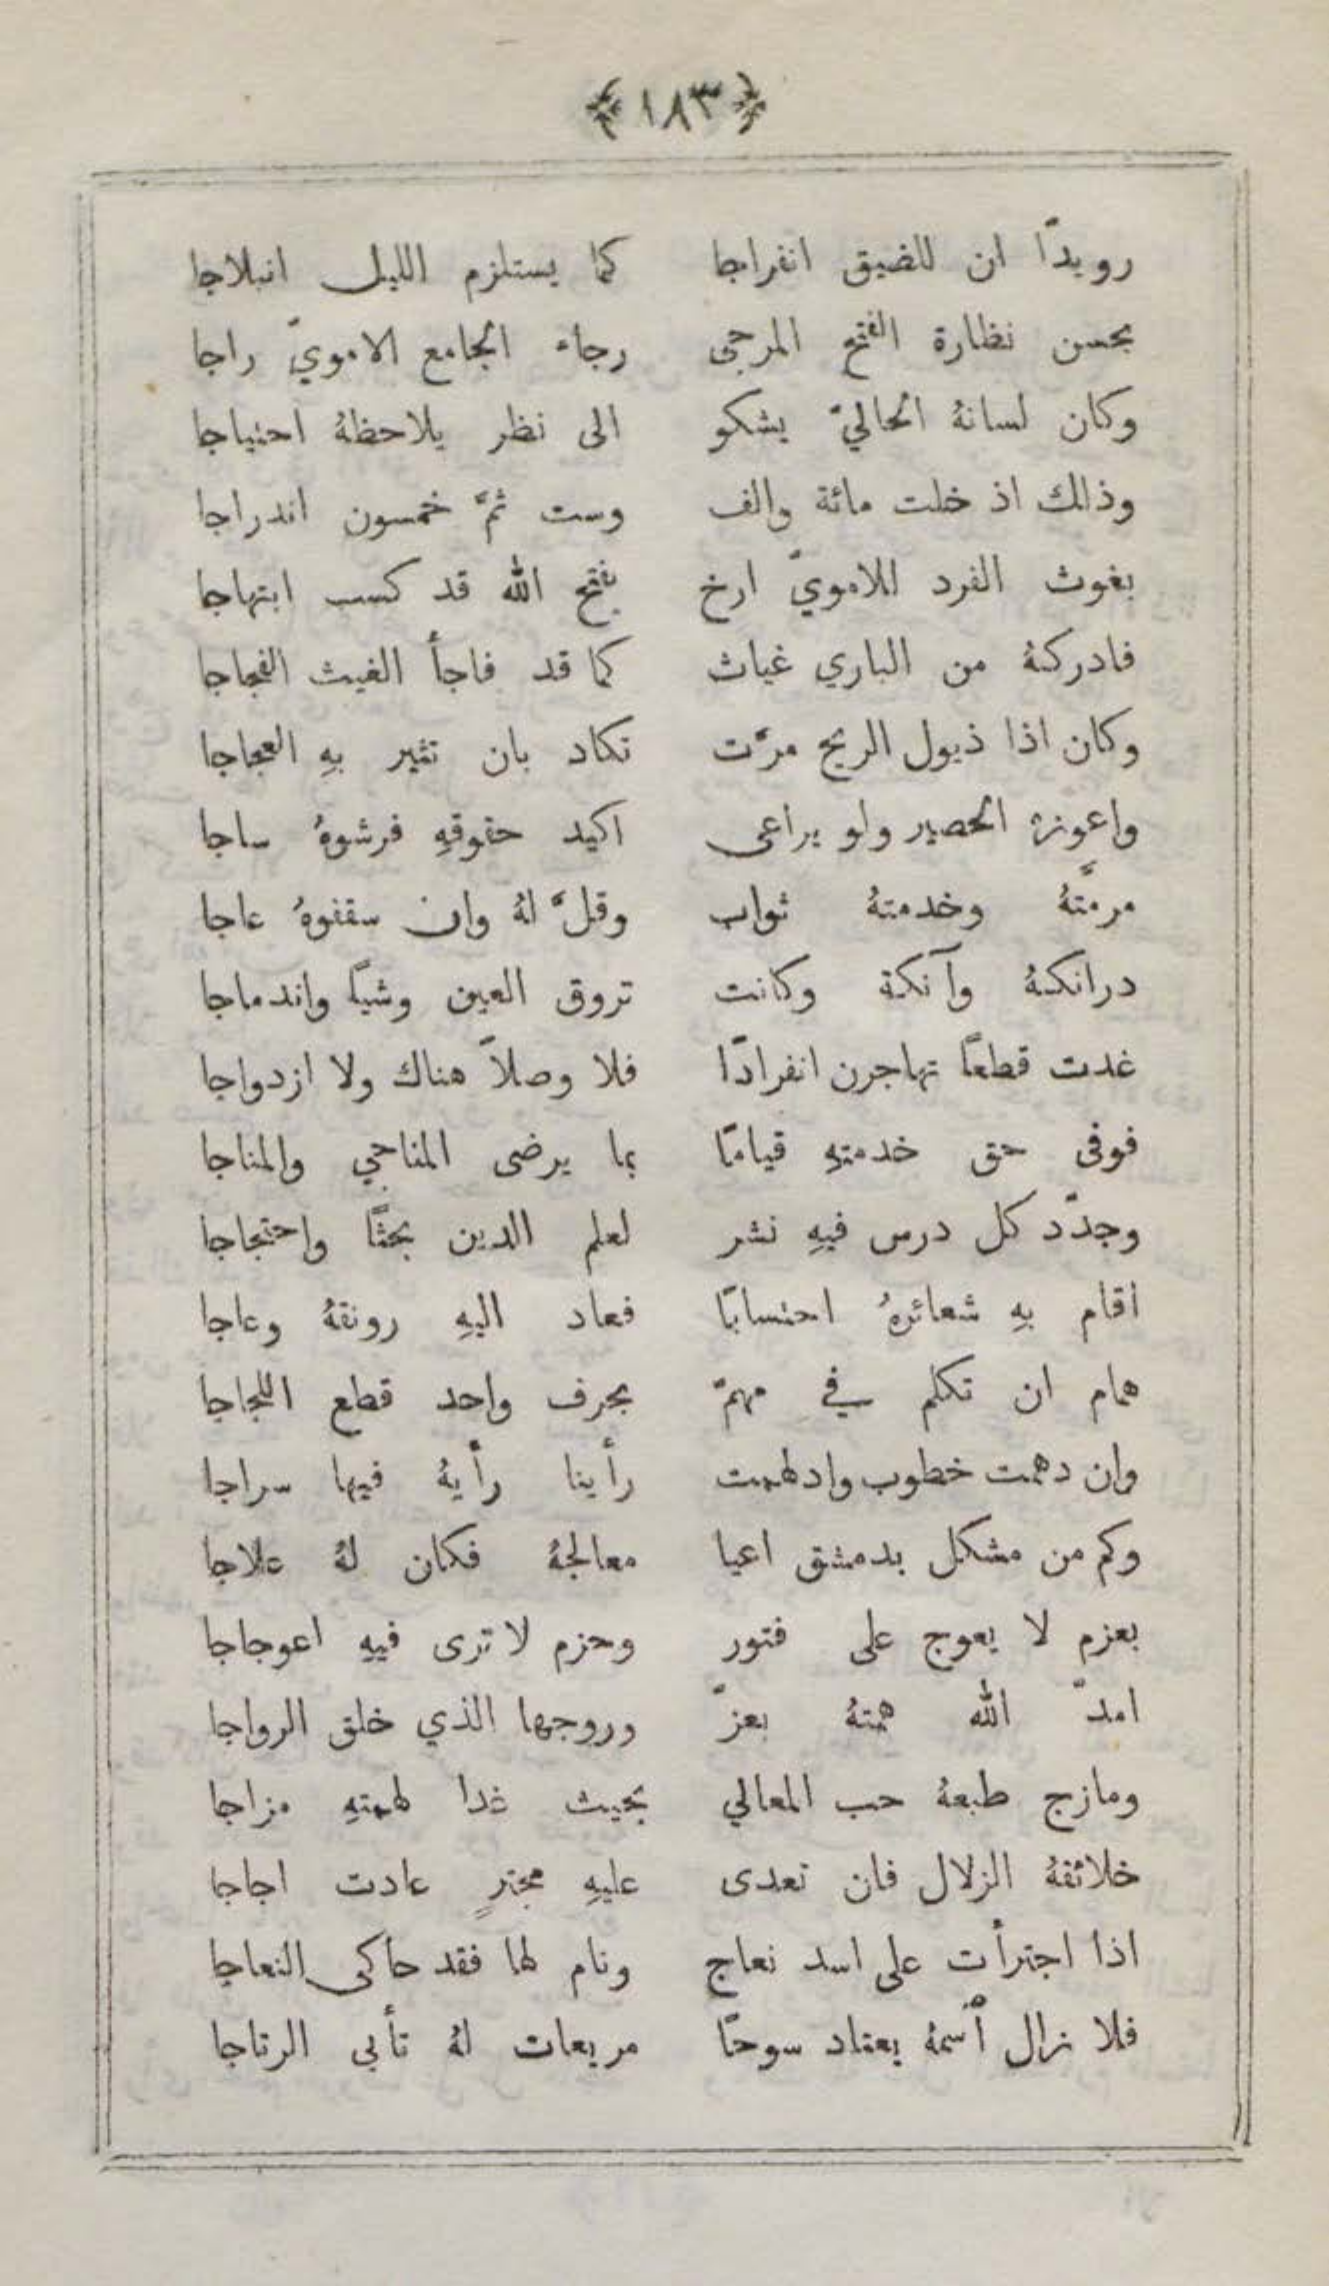 ﴿١٨٣﴾
رويدًا ان للضيق انفراجا كما يستلزم الليل انبلاجا
بحسن نظارة الفتح المرجى رجاء الجامع الامويّ راجا
وكان لسانهُ الحاليّ يشكو الى نظر يلاحظهُ احتياجا
وذلك اذ خلت مائة والف وست ثمَّ خمسون اندراجا
بغوث الفرد للامويّ ارخ بفتح الله قد كسب ابتهاجا
فادركهُ من الباري غياث كما قد فاجأ الغيث الفجاجا
وكان اذا ذيول الريح مرَّت تكاد بان تثير بهِ العجاجا
واعوزه الحصير ولو يراعى اكيد حقوقهِ فرشوهُ ساجا
مرمَّتهُ وخدمتهُ ثواب وقلَّ لهُ وان سقفوهُ عاجا
درانكهُ وآنكة وكانت تروق العين وشيًا واندماجا
غدت قطعًا تهاجرن انفرادًا فلا وصلاً هناك ولا ازدواجا
فوفى حق خدمتهِ قيامًا بما يرضى المناجي والمناجا
وجدّد كل درس فيهِ نشر لعلم الدين بحثًا واحتجاجا
اقام بهِ شعائرهُ احتسابًا فعاد اليهِ رونقهُ وعاجا
همام ان تكلم في مهمّ بحرف واحد قطع اللجاجا
وان دهمت خطوب وادلهمت رأينا رأيهُ فيها سراجا
وكم من مشكل بدمشق اعيا معالجهُ فكان لهُ علاجا
بعزم لا يعوج على فتور وحزم لا ترى فيهِ اعوجاجا
امدّ الله همتهُ بعزّ وروجها الذي خلق الرواجا
ومازج طبعهُ حب المعالي بحيث غدا لهمتهِ مزاجا
خلائقهُ الزلال فان تعدى عليهِ مجترٍ عادت اجاجا
اذا اجترأت على اسد نعاج ونام لها فقد حاكى النعاجا
فلا زال ٱسمهُ يعتاد سوحًا مريعات لهُ تأبى الرتاجا